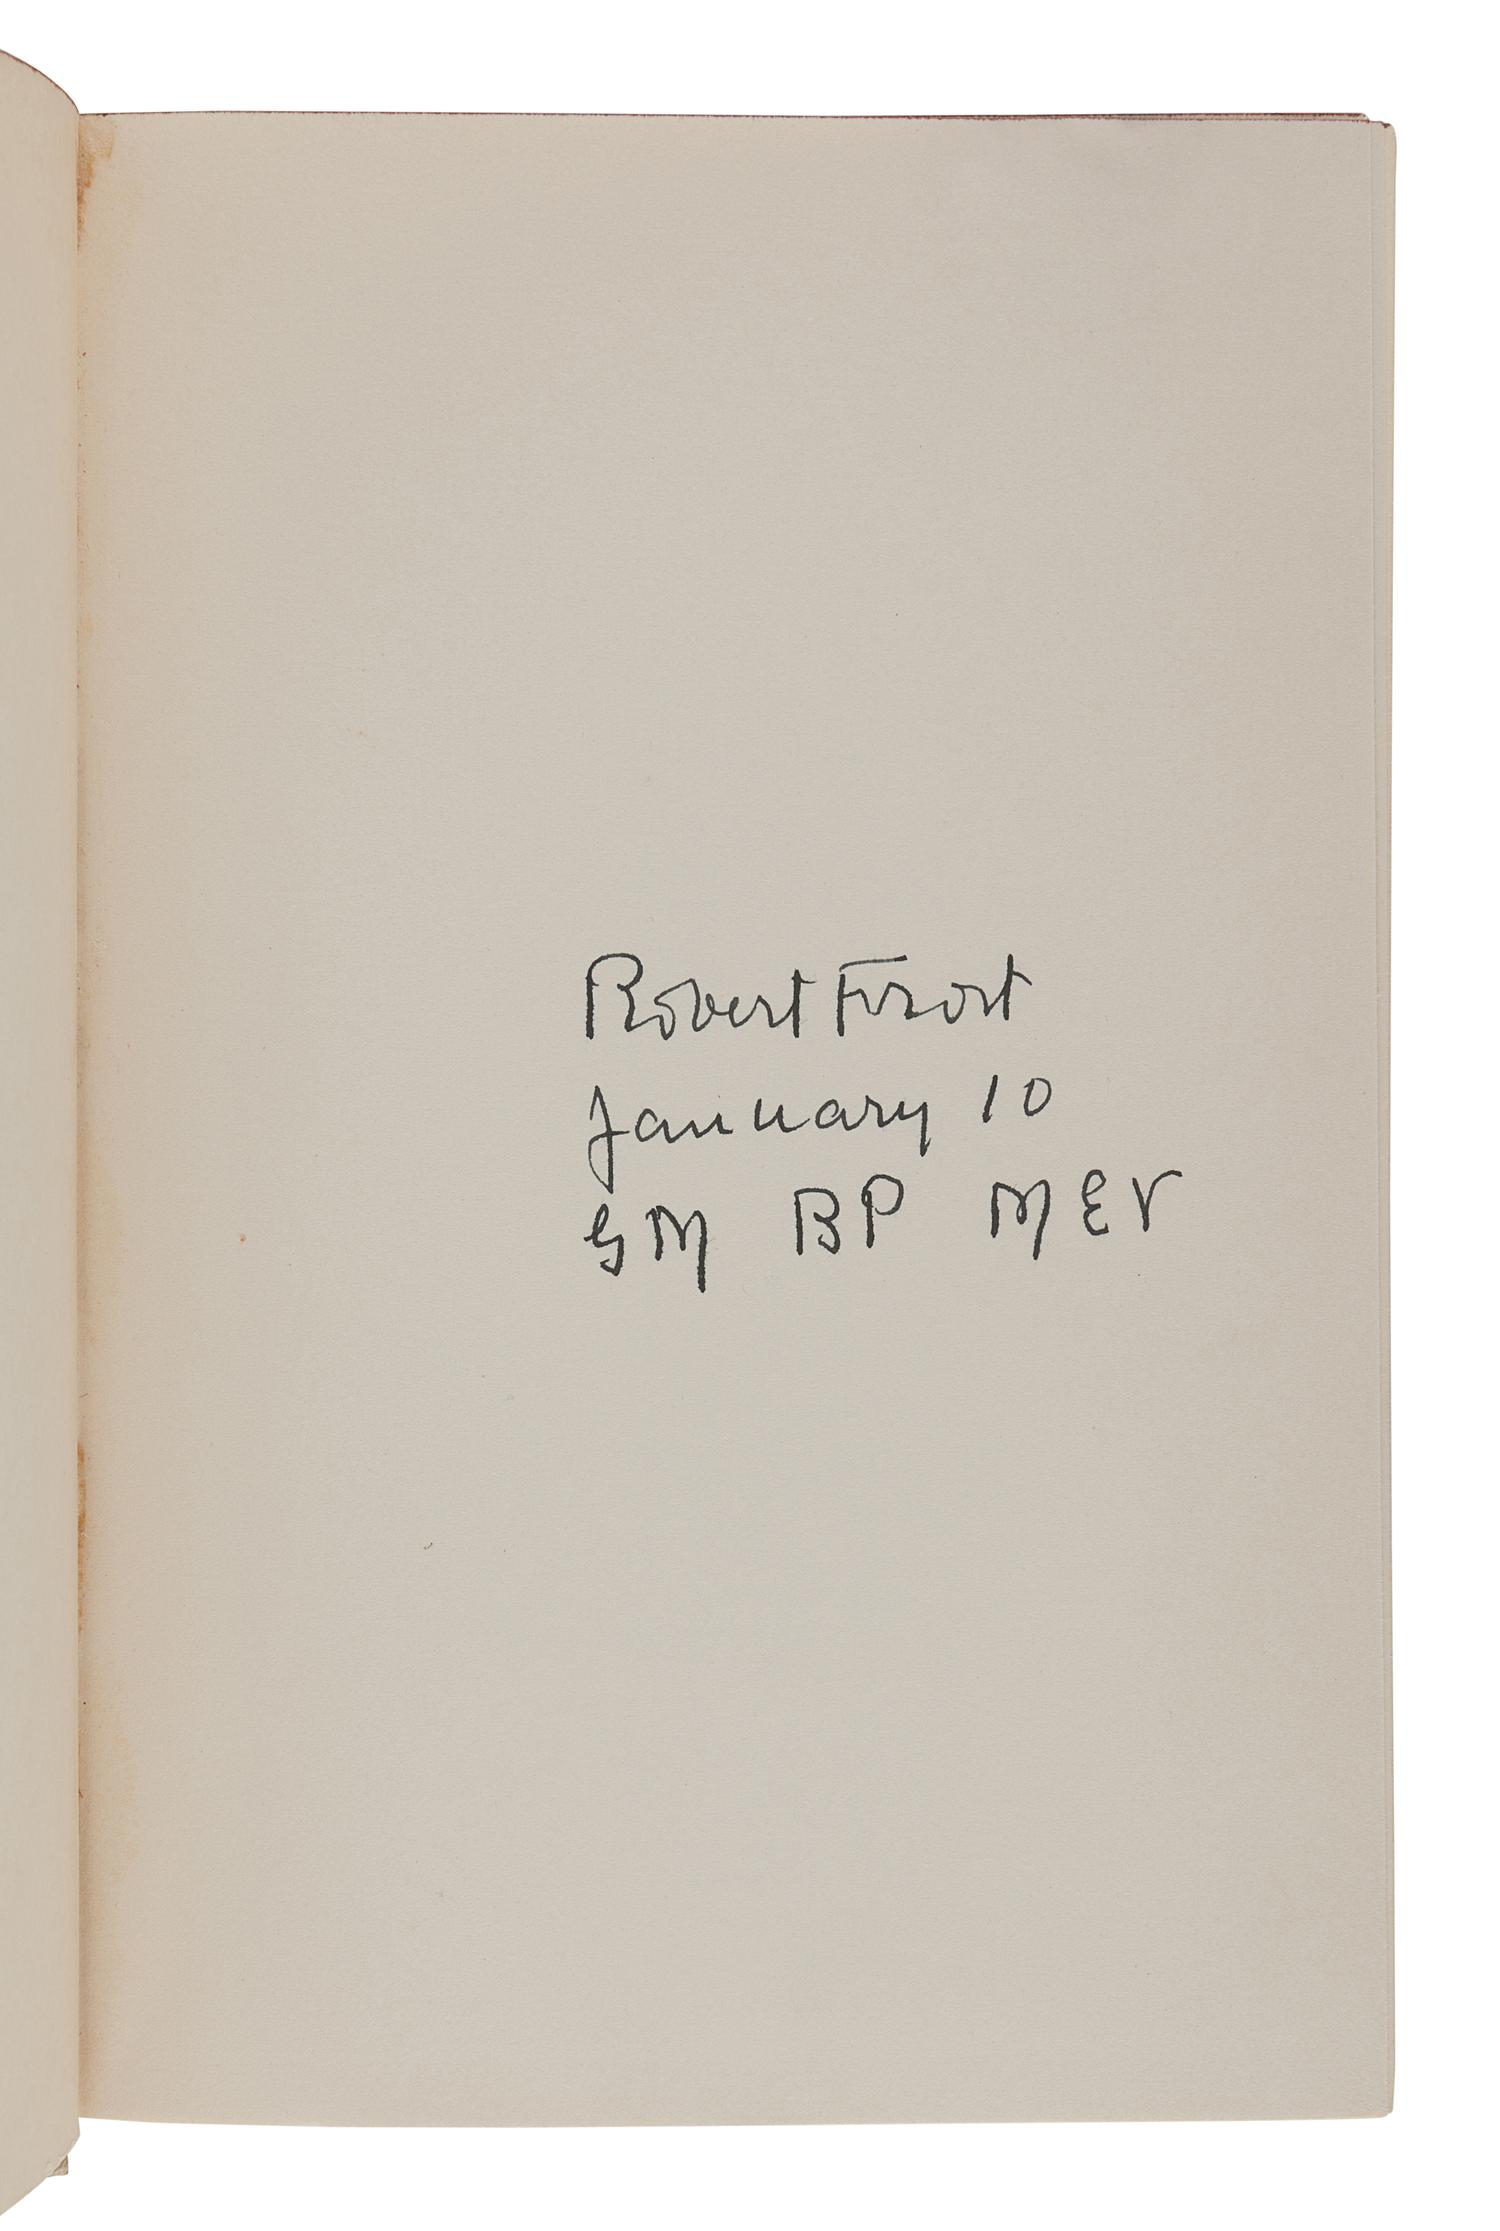 Robert Frost
January 10
GM BP MEV